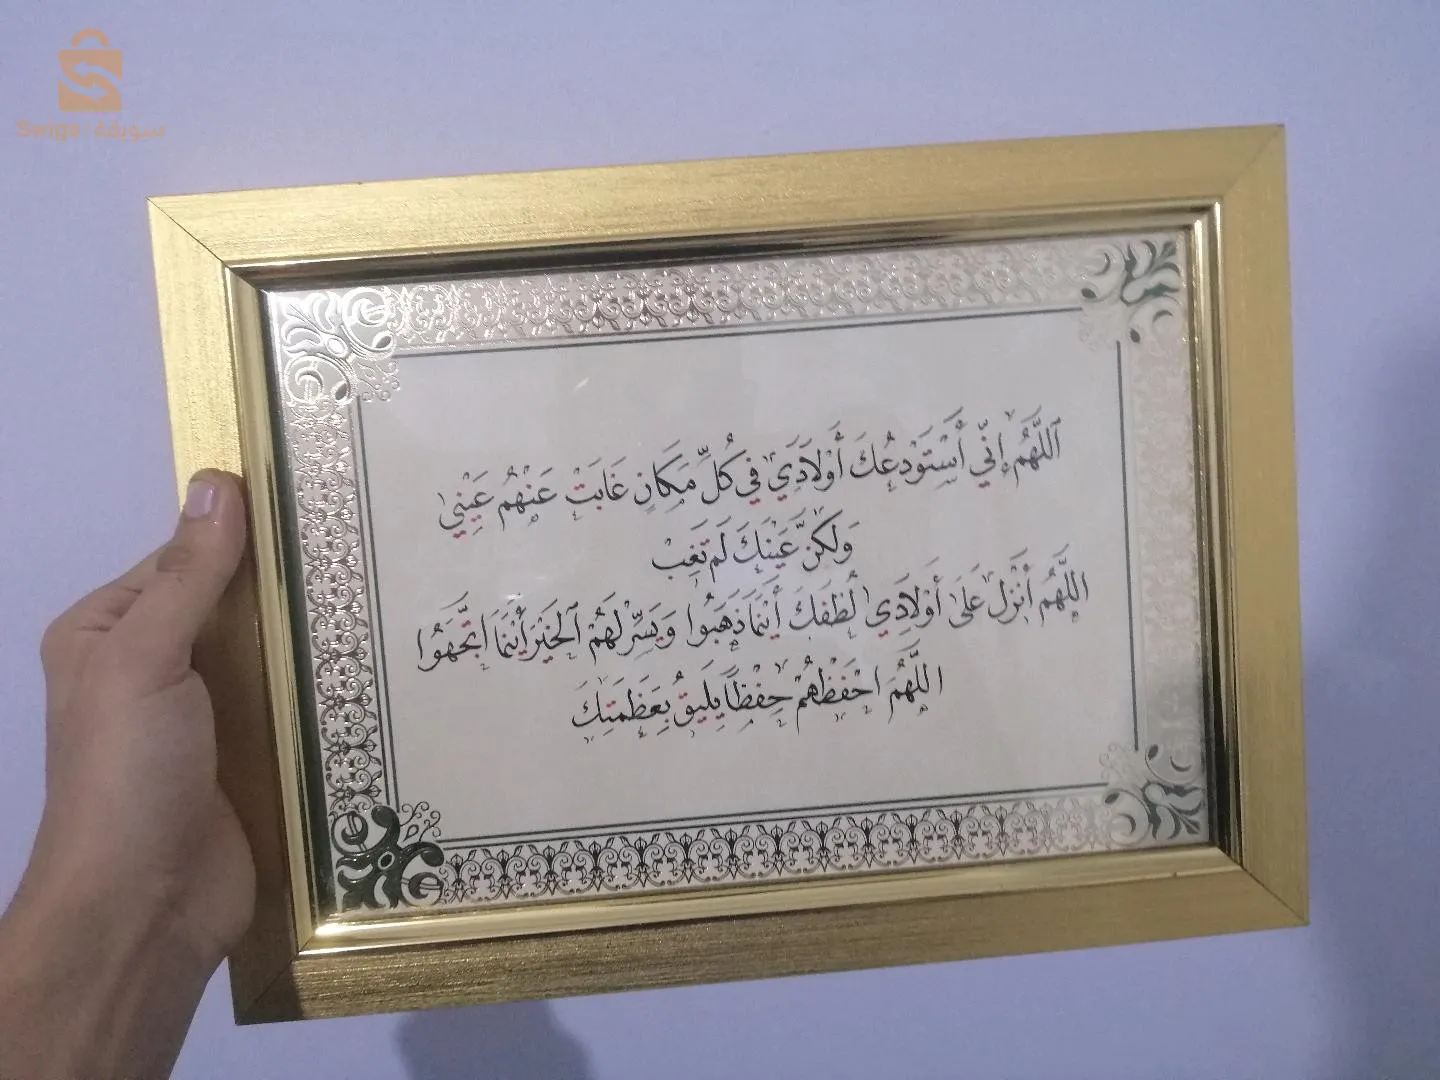 Swiga | سويقة
اَللَّهُمَ إِنِّي أَسْتَوْدِعُكَ أَوْلَادَيِ فِي كُلِّ مَكَانٍ غَابَتْ عَنْهُمْ عَيْنِي
وَلَكِنَّ عَيْنَكَ لَمْ تَغِبْ
اللَّهُمَ أَنْزِلْ عَلَى أَوْلَادَيِ لُطْفَكَ أَيْنَمَا ذَهَبُوا وَيَسِّرْ لَهُمْ اَلْخَيْرَ أَيْنَمَا اِتَّجَهُوا
اللَّهُمَ اِحْفَظْهُمْ حِفْظًا يَلِيقُ بِعَظَمَتِكَ